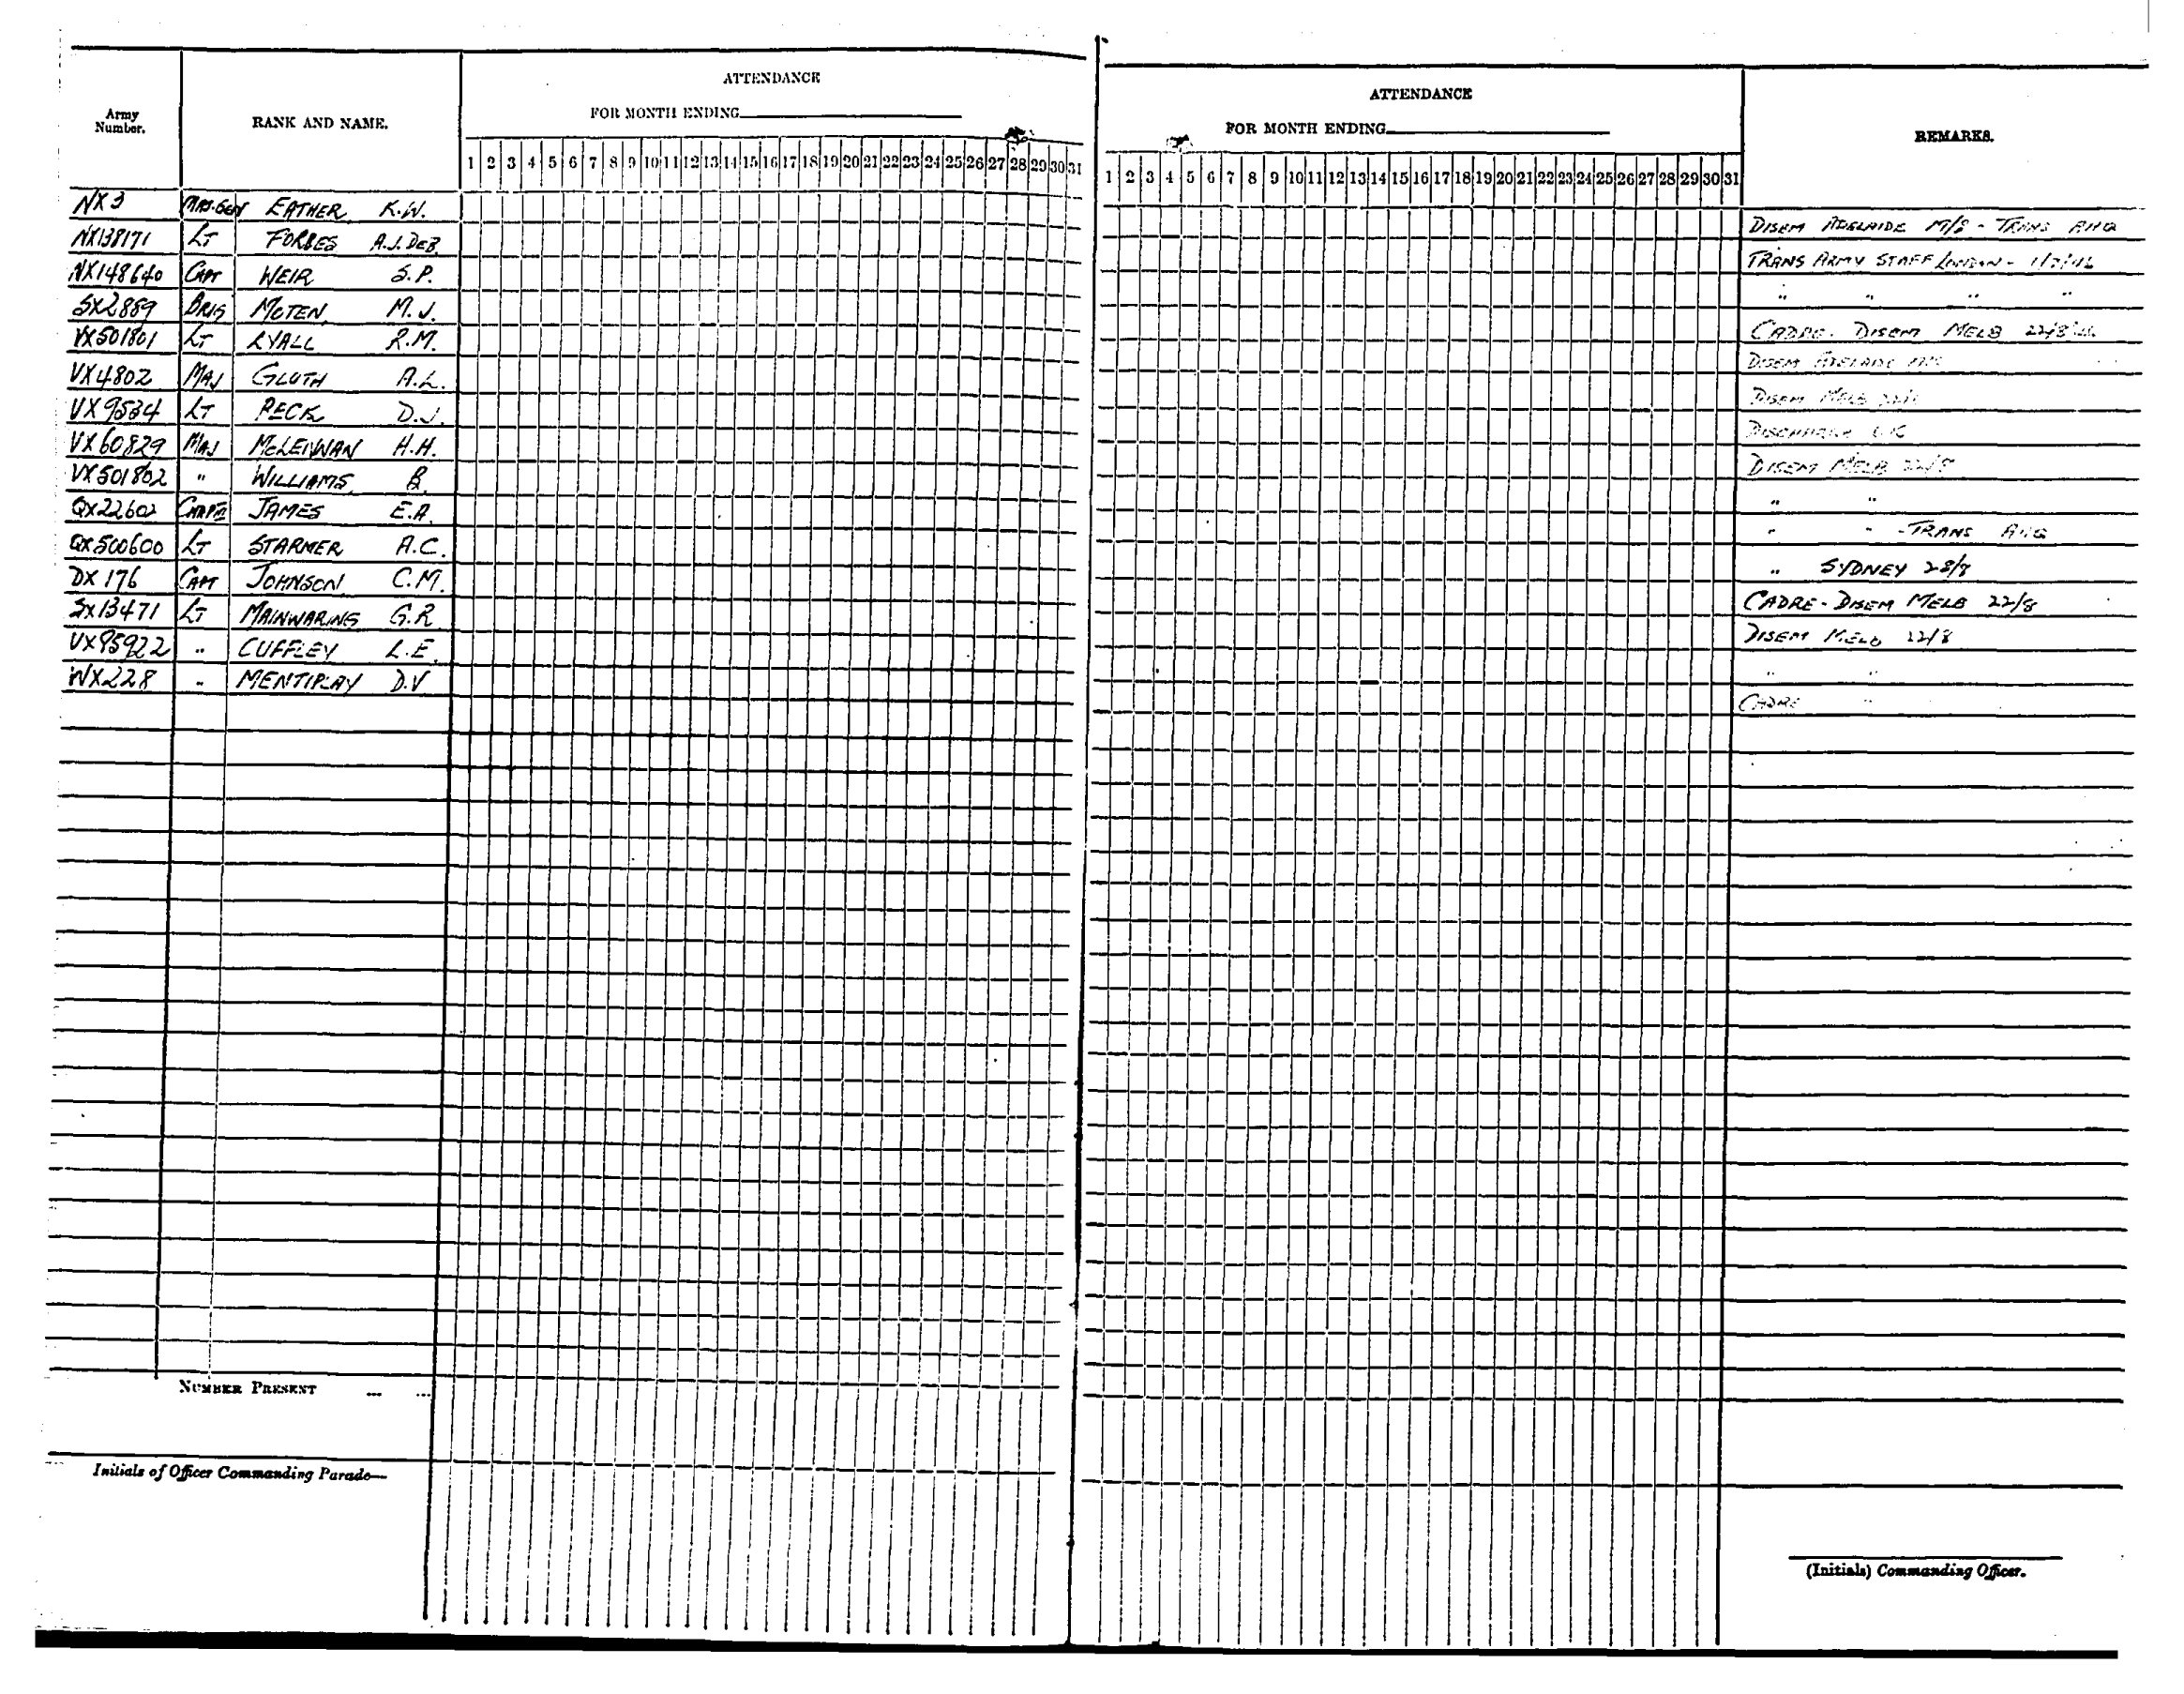 ATTENDANCE
FOR MONTH ENDING
Army Number.
RANK AND NAME.
1 2 3 4 5 6 7 8 9 10 11 12 13 14 15 16 17 18 19 20 21 22 23 24 25 26 27 28 29 30 31
ATTENDANCE
FOR MONTH ENDING
REMARKS.
1 2 3 4 5 6 7 8 9 10 11 12 13 14 15 16 17 18 19 20 21 22 23 24 25 26 27 28 29 30 31
NX3 MAJ.GEN EATHER K.W. DISEM ADELAIDE - TRANS AHQ
NX138171 LT FORBES A.J.DEB. TRANS ARMY STAFF LONDON - 1/7/46
NX148640 CAPT WEIR S.P. " " " "
SX2889 BRIG McTEN M.J. CADRE - DISEM MELB 22/8
VX501801 LT LYALL R.M. DISEM ADELAIDE
VX4802 MAJ GLUTH A.L. DISEM MELB
VX9534 LT PECK D.J. DISCHARGE
VX60829 MAJ H.H. DISEM MELB 22/8
VX501802 " WILLIAMS B. " "
QX22602 JAMES E.A. " " - TRANS AHQ
QX500600 LT STARMER A.C. " SYDNEY 28/8
DX176 CAPT JOHNSON C.M. CADRE - DISEM MELB 22/8
SX13471 LT MAINWARING G.R. DISEM MELB 22/8
VX95922 " CUFFLEY L.E. " "
WX228 " MENTIPLAY D.V CADRE "
NUMBER PRESENT ... ...
Initials of Officer Commanding Parade—
(Initials) Commanding Officer.